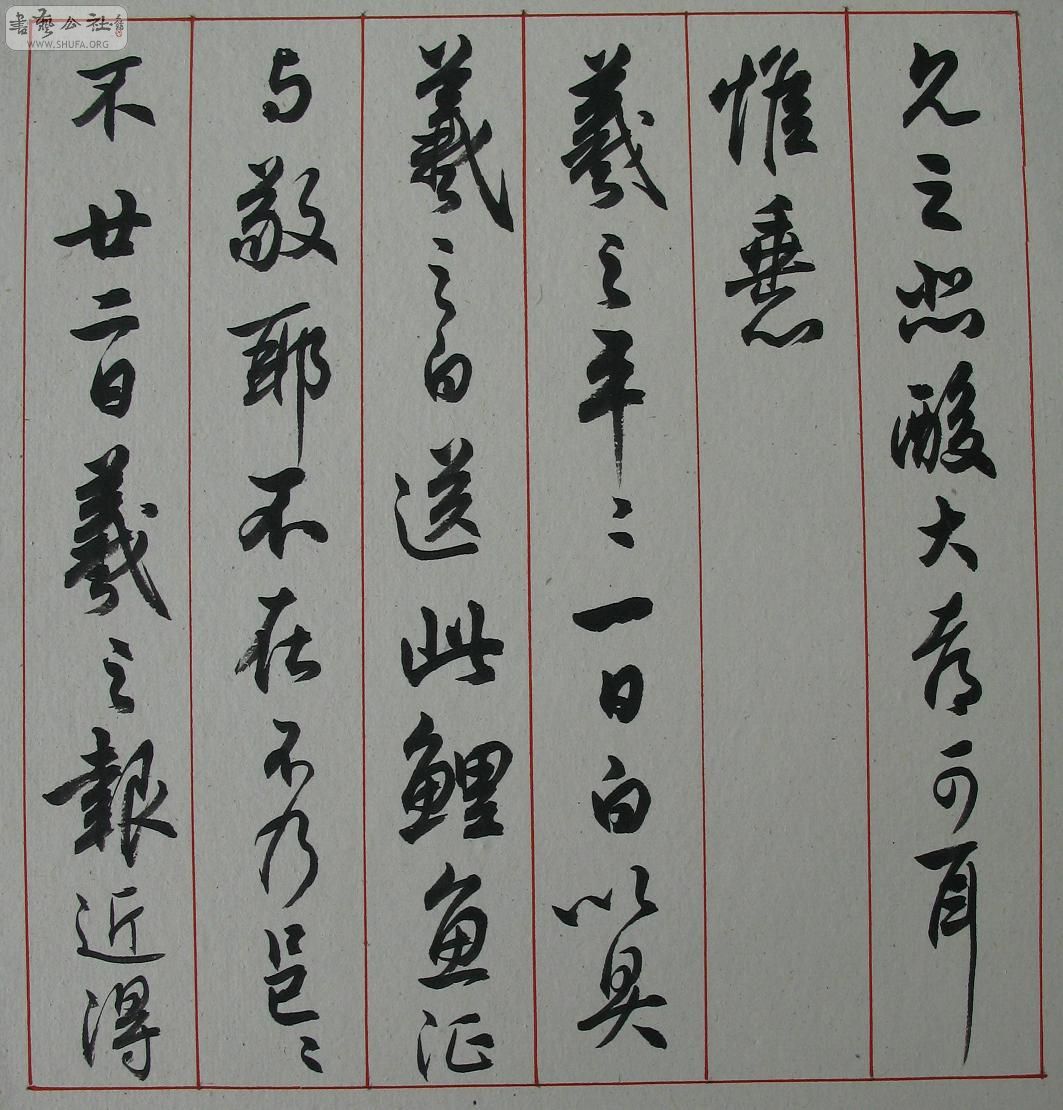 之悲酸大都可耳
惟
羲之平〻一日白以具
羲之白送此鯉魚征
与敬耶不在不乃邑〻
不廿二日羲之報近得
書藝公社
WWW.SHUFA.ORG